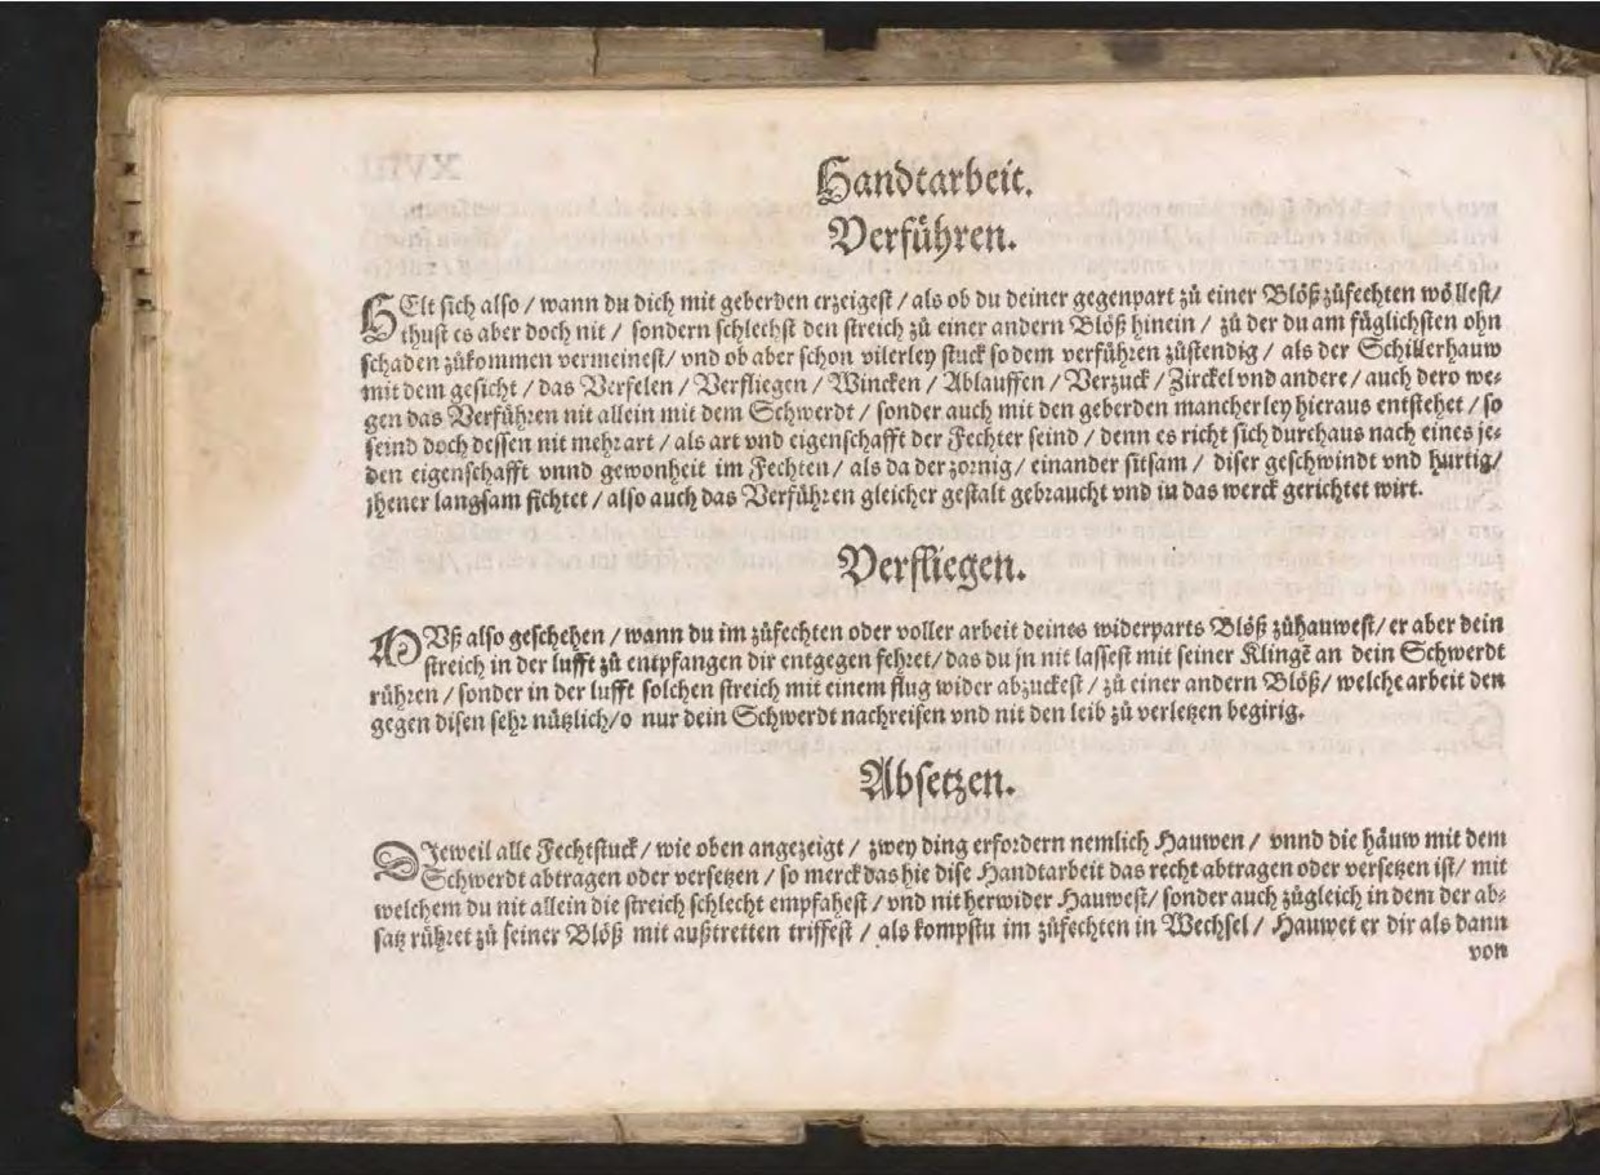 Handtarbeit.
Verführen.
HElt sich also / wann du dich mit geberden erzeigest / als ob du deiner gegenpart zů einer Blöß zůfechten wöllest/
thust es aber doch nit / sondern schlechst den streich zů einer andern Blöß hinein / zů der du am füglichsten ohn
schaden zůkommen vermeinest/ vnd ob aber schon vilerley stuck so dem verführen zůstendig / als der Schillerhauw
mit dem gesicht / das Verfelen / Verfliegen / Wincken / Ablauffen / Verzuck / Zirckel vnd andere / auch dero we⸗
gen das Verführen nit allein mit dem Schwerdt / sonder auch mit den geberden mancherley hieraus entstehet / so
seind doch dessen nit mehr art / als art vnd eigenschafft der Fechter seind / denn es richt sich durchaus nach eines je⸗
den eigenschafft vnnd gewonheit im Fechten / als da der zornig / einander sitsam / diser geschwindt vnd hurtig/
jhener langsam fichtet / also auch das Verführen gleicher gestalt gebraucht vnd in das werck gerichtet wirt.
Verfliegen.
MVß also geschehen / wann du im zůfechten oder voller arbeit deines widerparts Blöß zůhauwest/ er aber dein
streich in der lufft zů entpfangen dir entgegen fehret/ das du jn nit lassest mit seiner Klingē an dein Schwerdt
rühren / sonder in der lufft solchen streich mit einem flug wider abzuckest / zů einer andern Blöß/ welche arbeit den
gegen disen sehr nützlich/o nur dein Schwerdt nachreisen vnd nit den leib zů verletzen begirig.
Absetzen.
DJeweil alle Fechtstuck / wie oben angezeigt / zwey ding erfordern nemlich Hauwen / vnnd die häuw mit dem
Schwerdt abtragen oder versetzen / so merck das hie dise Handtarbeit das recht abtragen oder versetzen ist/ mit
welchem du nit allein die streich schlecht empfahest / vnd nit herwider Hauwest/ sonder auch zůgleich in dem der ab⸗
satz rühret zů seiner Blöß mit außtretten triffest / als kompstu im zůfechten in Wechsel / Hauwet er dir als dann
von